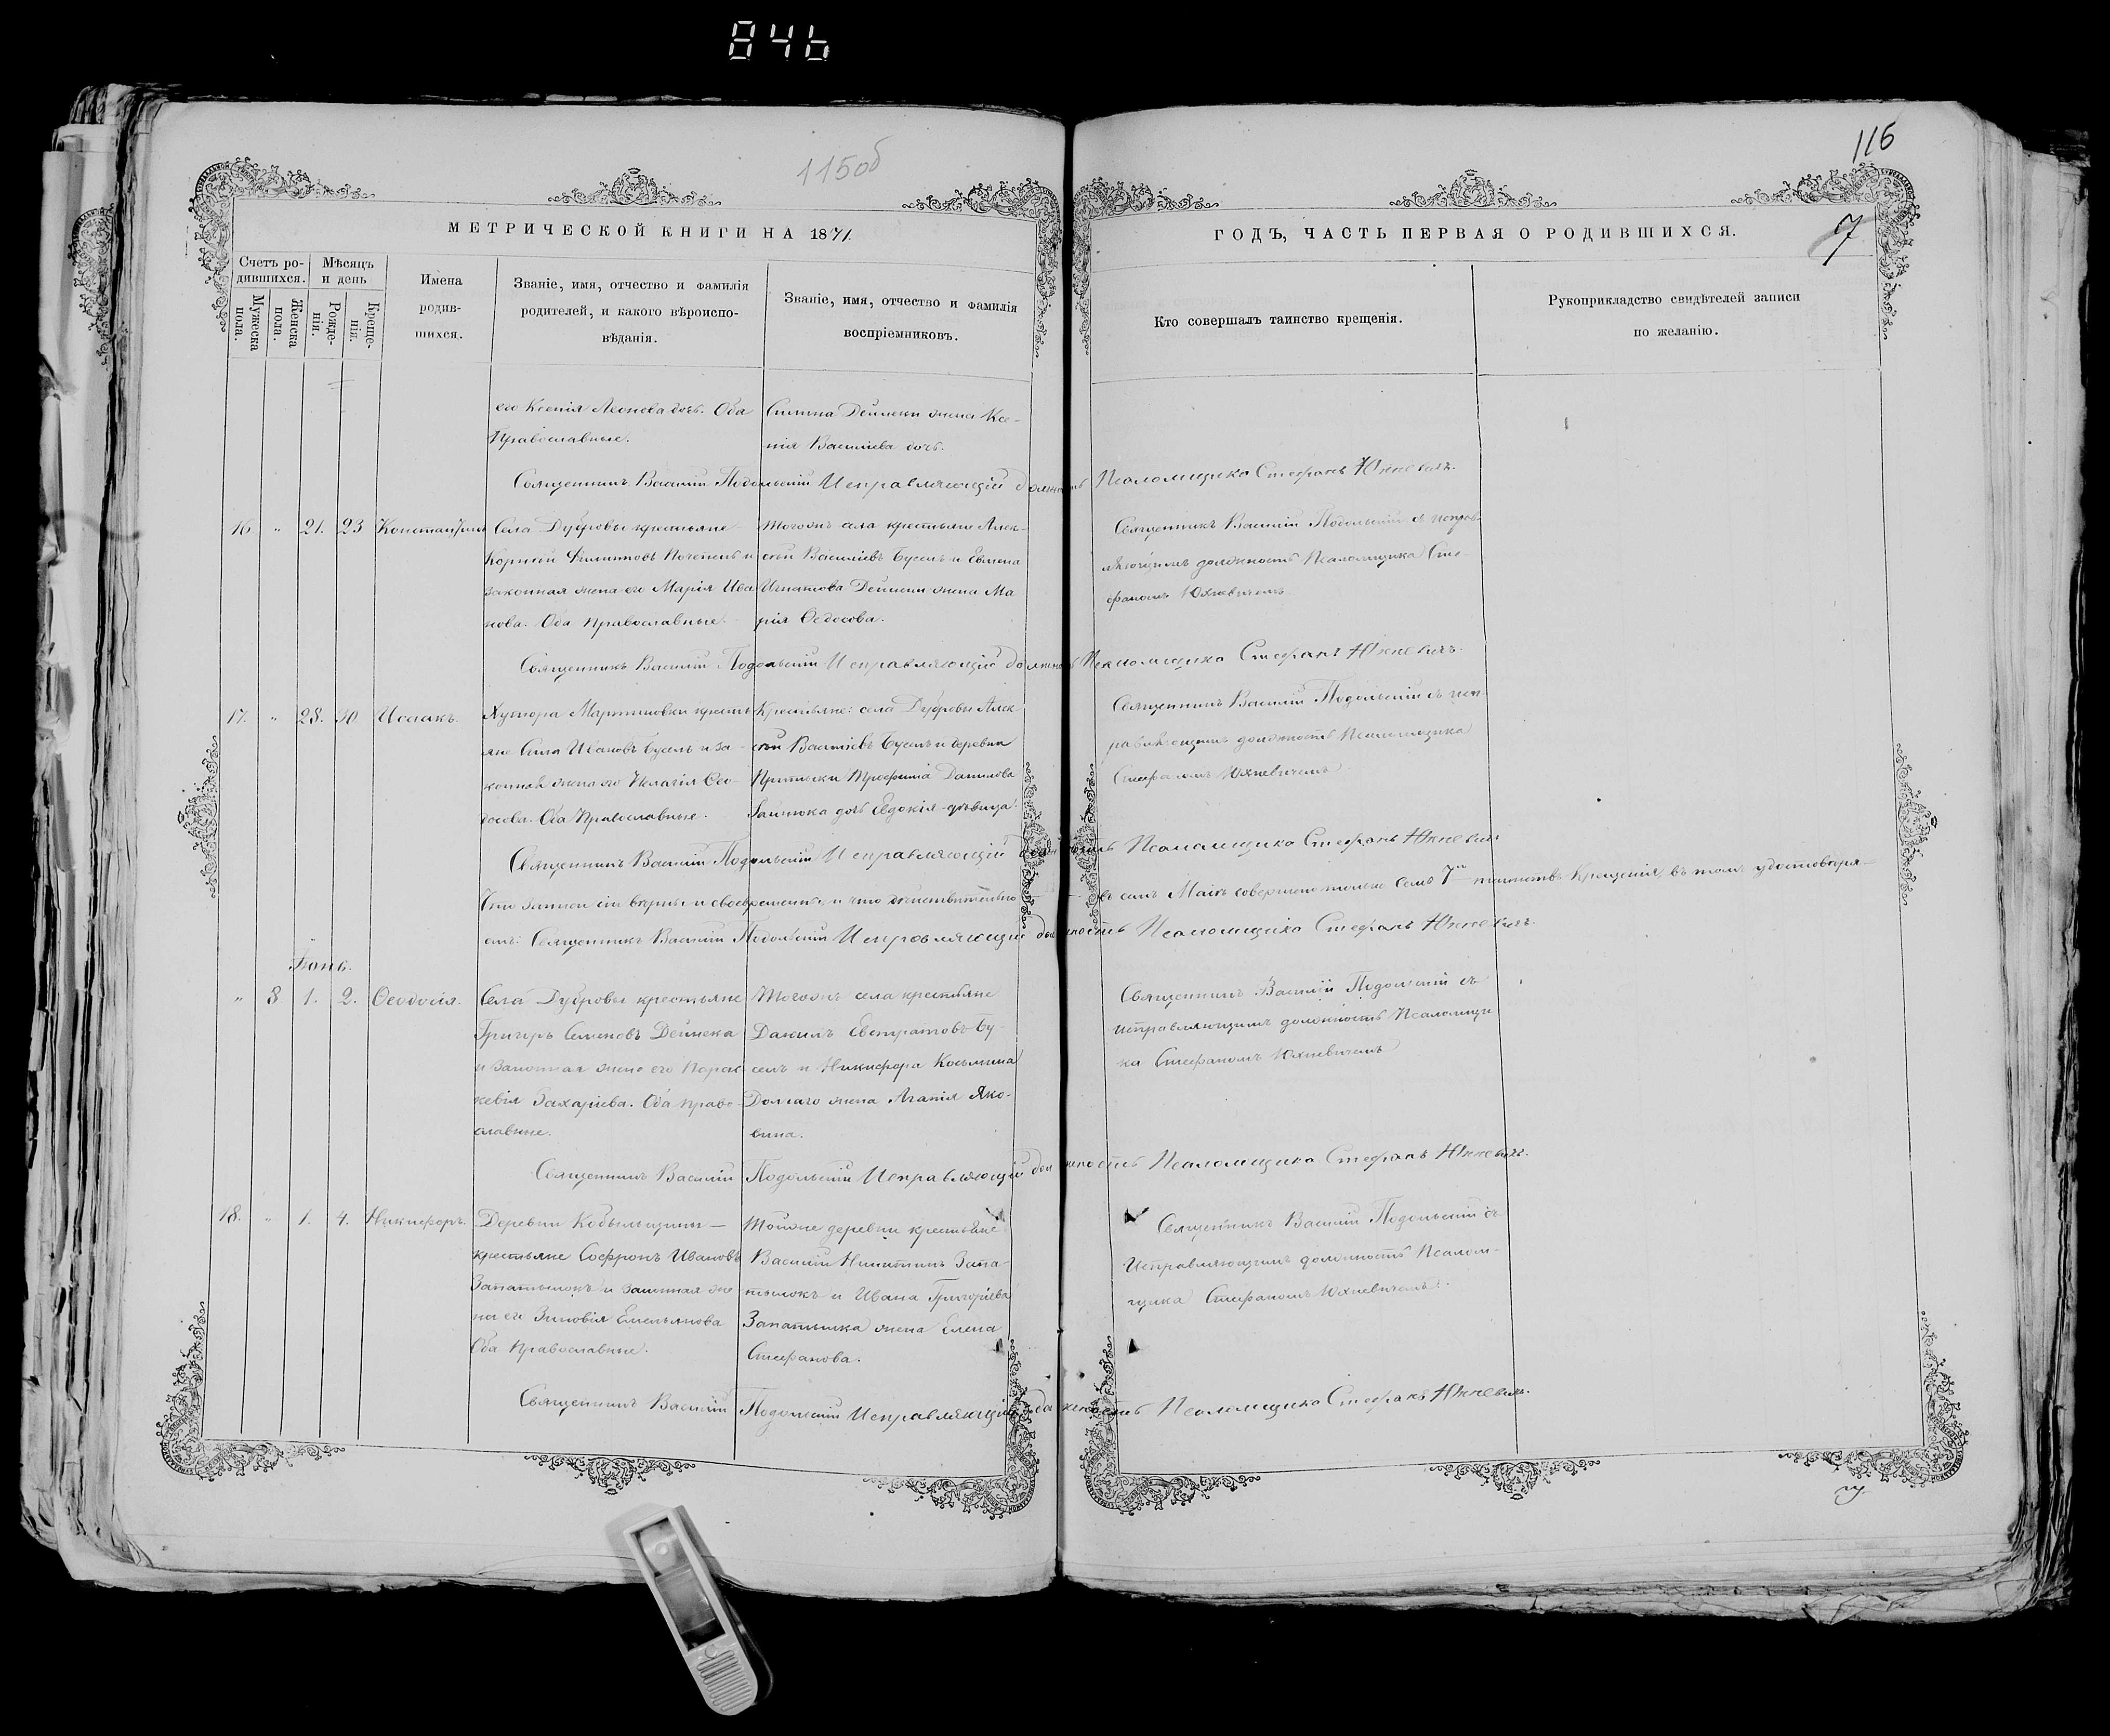 846
115об
116
МЕТРИЧЕСКОЙ КНИГИ НА 1871.
ГОДЪ, ЧАСТЬ ПЕРВАЯ О РОДИВШИХСЯ.
7
Счетъ ро-
дившихся.
Мужеска
пола.
Женска
пола.
Мѣсяцъ
и день
Рожде-
нія.
Креще-
нія.
Имена
родив-
шихся.
Званіе, имя, отчество и фамилія
родителей, и какого вѣроиспо-
вѣданія.
Званіе, имя, отчество и фамилія
воспріемниковъ.
Кто совершалъ таинство крещенія.
Рукоприкладство свидѣтелей записи
по желанію.
его Ксенія Леонова дочь. Оба
Православные.
Дейнеки жена Ксе-
нія Васильева дочь.
Священникъ Василій Подольскій Исправляющій должность Псаломщика Стефанъ Юхневичъ.
16 " 21. 23 Константинъ
Села Дубровы крестьяне
Корнѣй Филиповъ и
законная жена его Марія Ива
нова. Оба Православные.
Тогожъ села крестьяне Алек-
сѣй Васильевъ Бусель и
Игнатова Дейнеки жена Ма
рія Ѳедосова.
Священникъ Василій Подольскій съ исправ-
ляющимъ должность Псаломщика Сте-
фаномъ Юхневичемъ
Священникъ Василій Подольскій Исправляющій должность Псаломщика Стефанъ Юхневичъ.
17. " 28. 30 Исаакъ.
Хутора Мартиновки кресть
яне Сила Ивановъ Бусель и за-
конная жена его Пелагія Ѳео-
досова. Оба Православные.
Крестьяне: села Дубровы Алек
сѣй Васильевъ Бусель и деревни
Притыки Трофима Данилова
дочь Евдокія дѣвица.
Священникъ Василій Подольскій съ исп-
равляющимъ должность Псаломщика
Стефаномъ Юхневичемъ
Священникъ Василій Подольскій Исправляющій должность Псаломщика Стефанъ Юхневичъ
Что записи сіи вѣрны и своевременны, и что дѣйствительно въ семъ Маѣ совершено только семь 7 таинствъ Крещенія, въ томъ удостовѣря-
емъ: Священникъ Василій Подольскій Исправляющій должность Псаломщика Стефанъ Юхневичъ.
Іюнь.
" 8 1. 2. Ѳеодосія.
Села Дубровы крестьяне
Григорь Семеновъ Дейнека
и законная жена его Парас
кевія Захаріева. Оба Право-
славные.
Тогожъ села крестьяне
Данилъ Евстратовъ Бу-
сель и Никифора Косьмина
Долгаго жена Агапія Яко-
вина.
Священникъ Василій Подольскій съ
исправляющимъ должность Псаломщи
ка Стефаномъ Юхневичемъ
Священникъ Василій Подольскій Исправляющій должность Псаломщика Стефанъ Юхневичъ.
18. " 1. 4. Никифоръ.
Деревни Кобыльщины
крестьяне Софронъ Ивановъ
Запатылокъ и законная же
на его Зиновія Емельянова
Оба Православные.
Тойже деревни крестьяне
Василій Никитинъ Запа-
тылокъ и Ивана Григоріева
Запатылка жена Елена
Стефанова.
Священникъ Василій Подольскій съ
Исправляющимъ должность Псалом-
щика Стефаномъ Юхневичемъ.
Священникъ Василій Подольскій Исправляющій должность Псаломщика Стефанъ Юхневичъ.